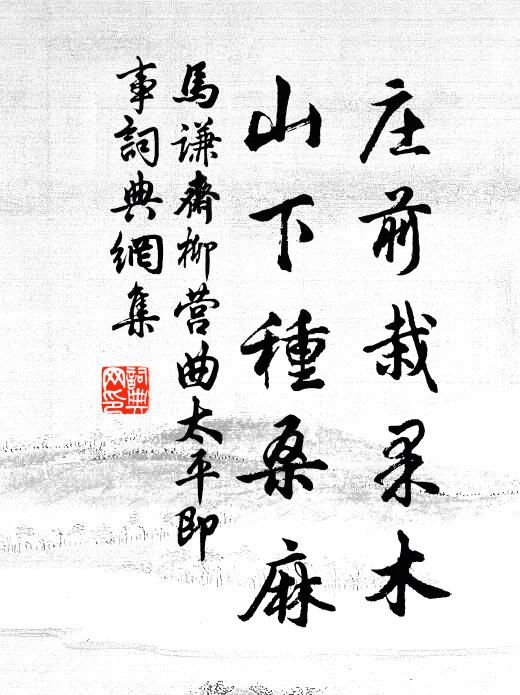 庄前栽果木
山下種桑麻
馬谦齋柳营曲太平即
事詞典網集
詞典
网印